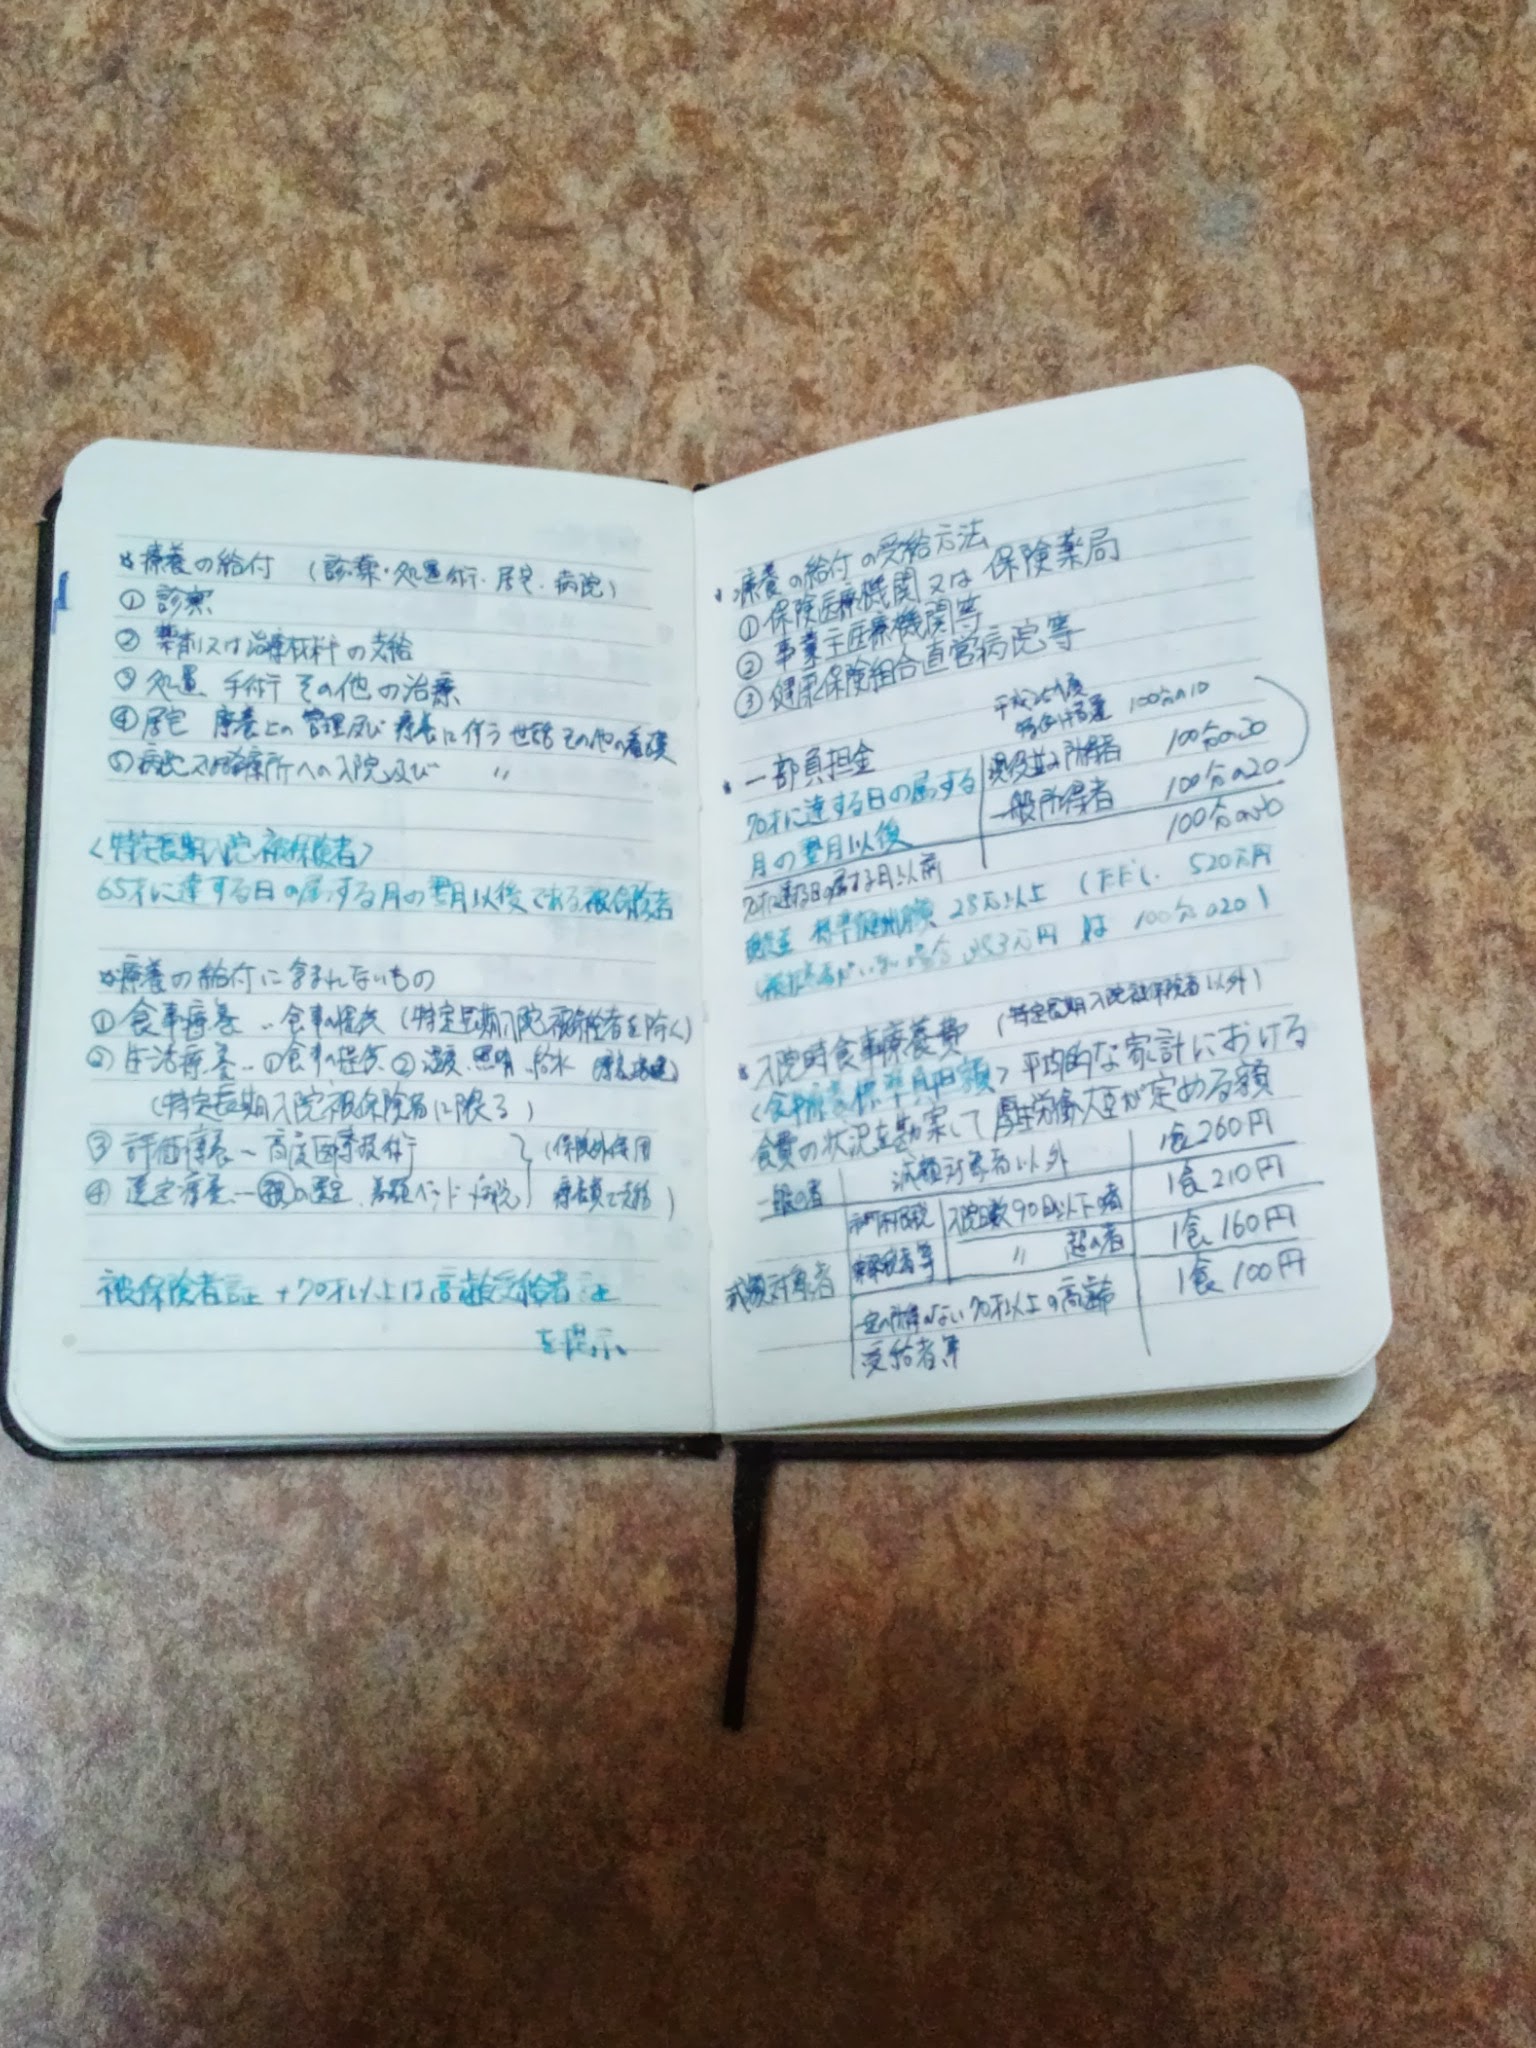 療養の給付 (診・薬・処置手術・居宅・病院)
① 診察
② 薬剤又は治療材料の支給
③ 処置、手術 その他の治療
④ 居宅 療養上の管理及び療養に伴う世話その他の看護
⑤ 病院又は診療所への入院及び 〃
<特定長期入院被保険者>
65才に達する日の属する月の翌月以後である被保険者
療養の給付に含まれないもの
① 食事療養 … 食事の提供 (特定長期入院被保険者を除く)
② 生活療養 … ①食事の提供 ②温度、照明、給水
(特定長期入院被保険者に限る)
③ 評価療養 … 高度医療技術 (保険外併用
④ 選定療養 … の選定、差額ベッド 療養費で支給)
被保険者証 + 70才以上は高齢受給者証
を提示
療養の給付の受給方法
① 保険医療機関又は保険薬局
② 事業主医療機関等
③ 健康保険組合直営病院等
一部負担金
平成25年度
100分の10
70才に達する日の属する
月の翌月以後
現役並み所得者 100分の30
一般所得者 100分の20
70才に達する日の属する月以前 100分の30
標準報酬月額 28万以上 (ただし、520万円
383万円 は 100分の20)
入院時食事療養費 (特定長期入院被保険者以外)
<食事療養標準負担額> 平均的な家計における
食費の状況を勘案して厚生労働大臣が定める額
一般の者 減額対象者以外 1食260円
減額対象者 市町村民税 非課税者等 入院日数90日以下の者 1食210円
〃 超の者 1食160円
一定の所得のない70才以上の高齢
受給者等 1食100円